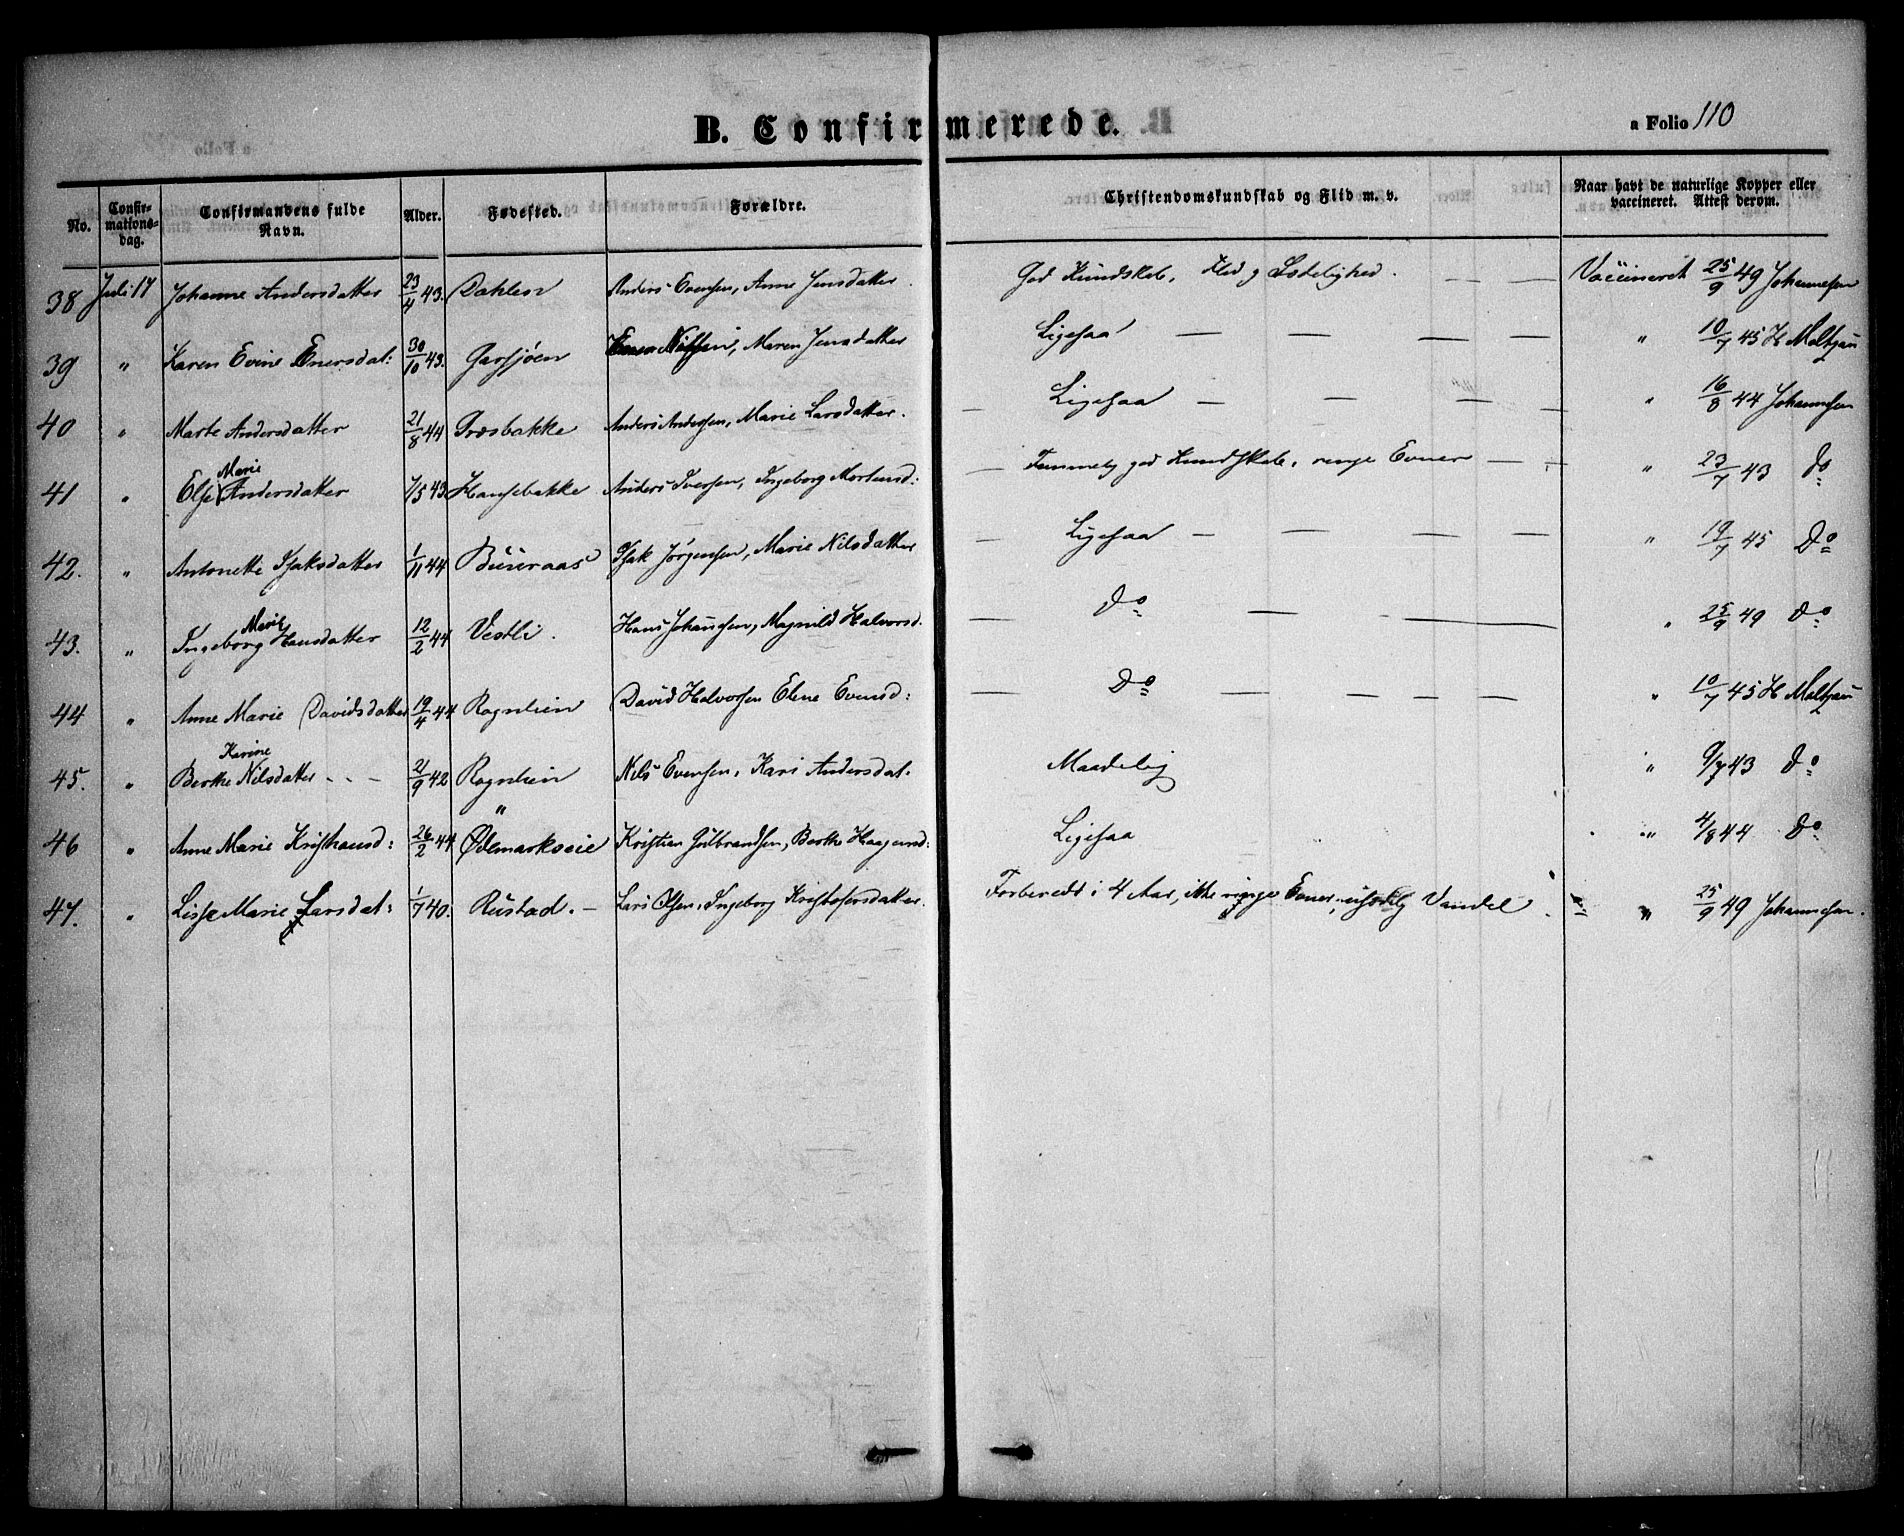 B. Confirmerede.
a Folio 110
No.
Confir-
mations-
dag.
Confirmandens fulde
Navn.
Alder.
Fødested.
Forældre.
Christendomskundskab og Flid m. v.
Naar havt de naturlige Kopper eller
vaccineret. Attest derom.
38 Juli 17 Johanne Andersdatter 23/4 43. Dahlen Anders Evensen, Anne Jensdatter. God Kundskab, Flid g Sædelighed. — — Vaccineret 25/9 49 Johannesen
39 " Karen Evine Enersdat: 30/10 43. Garsjøen Maren Jensdatter Ligesaa — — — — — " 10/7 45 H
40 " Marte Andersdatter 21/8 44 Græsbakke Anders Andersen, Marie Larsdatter. — Ligesaa — — — — " 16/8 44 Johannesen
Marie
41 " Else Andersdatter 7/5 43 Hansebakke Anders Iversen, Ingeborg Mortensd: — Temmelig god Kundskab, ringe Evner — — " 23/7 43 Do
42. " Antonette Isaksdatter 1/11 44 Buseraas Isak Jørgensen, Marie Nilsdatter — Ligesaa — — — — — " 19/7 45 Do
Marie
43. " Ingeborg Hansdatter 12/2 44 Vestli. Hans Johansen, Magnild Halvorsd. — Do — — " 25/9 49 Do
44 " Anne Marie Davidsdatter 19/4 44 Rognlien David Halvorsen Elene Evensd: — Do — — — — — " 10/7 45 H
Karine
45. " Berthe Nilsdatter - - - 21/9 42 Rognlien Nils Evensen, Kari Andersdat. Maadelig " 9/7 43 Do
"
46 " Anne Marie Kristiansd: 26/2 44 Ødemarkseie Kristian Gulbrandsen, Berthe Haagensd: Ligesaa " 4/8 44 Do
47. " Lisse Marie Larsdat: 1/7 40. Rustad. — Lars Olsen, Ingeborg Kristofersdatter. Forberedt i 4 Aar, ikke ringe Evner, usædelig Vandel. " 25/9 49 Johannesen.